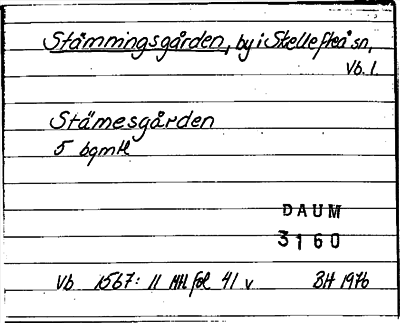 Stämmingsgården, by i Skellefteå sn,
Vb. l.
Stämesgården
5 bgmtl
DAUM
3160
Vb 1567: 11 Mtl fol 41 v BH 1976